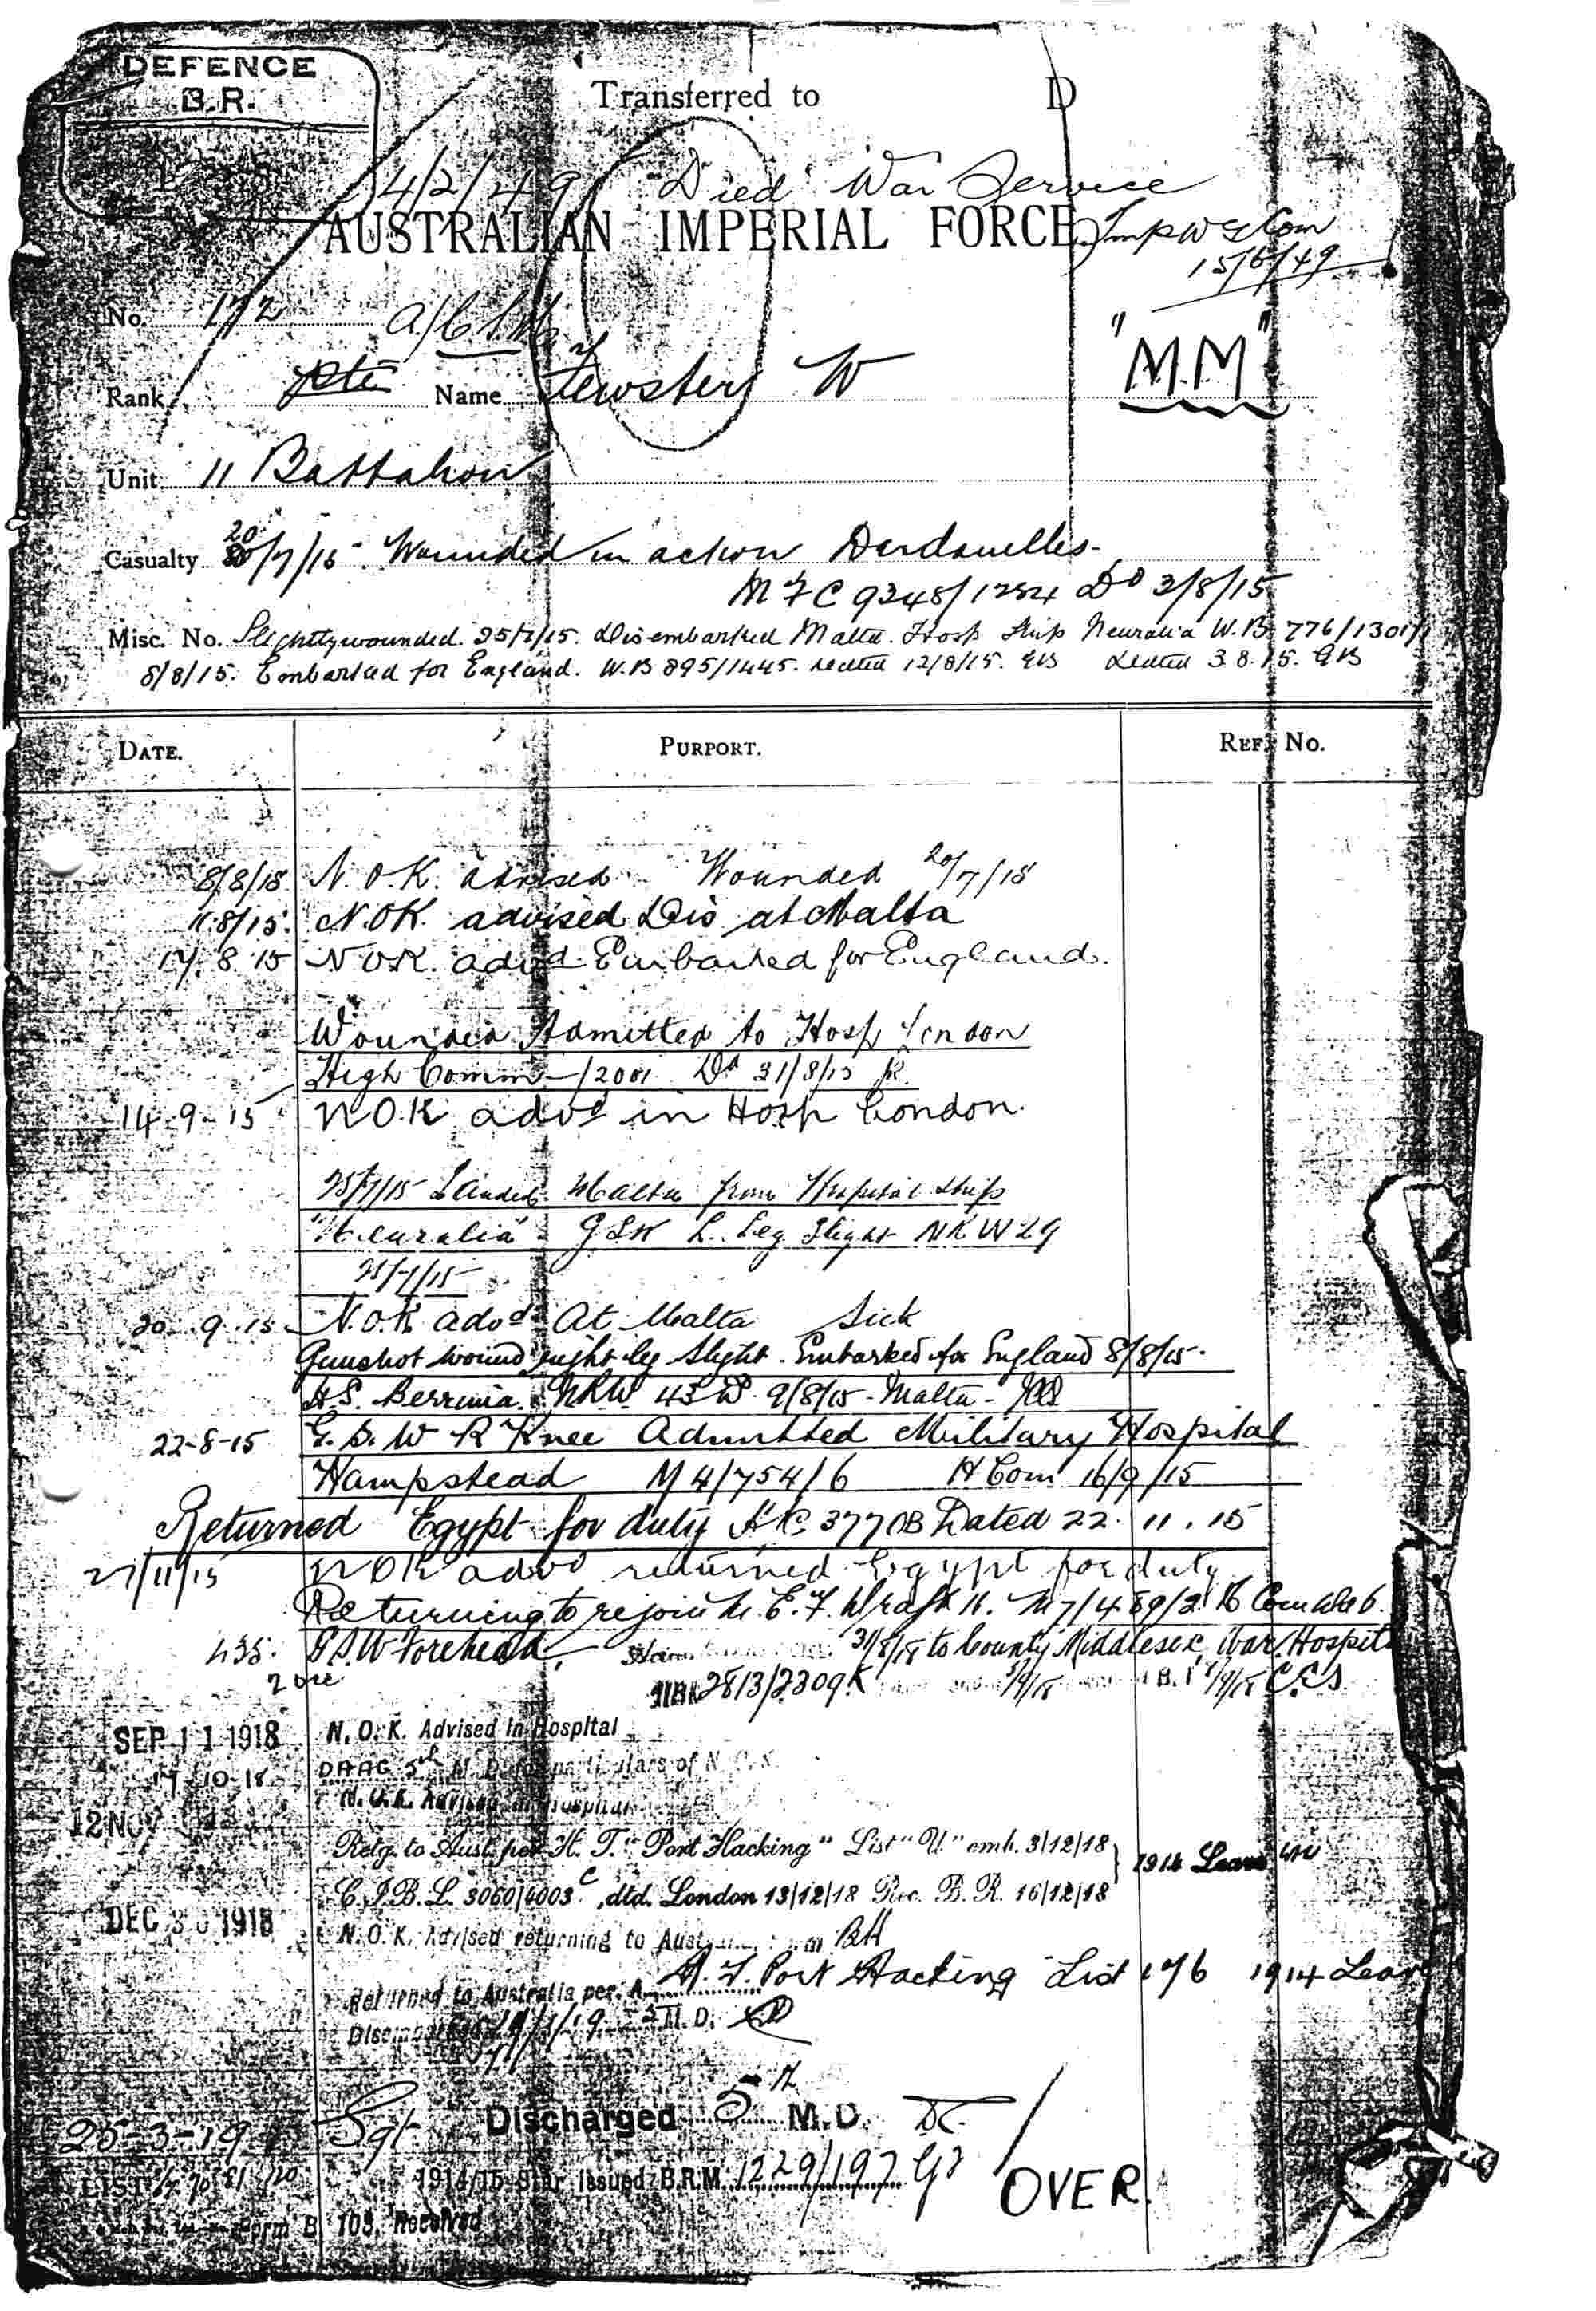 DEFENCE
B.R.
Transferred to D
4/2/49 "Died" War Service
AUSTRALIAN IMPERIAL FORCE
15/6/49
No. 172
Rank Pte Name Fewster W "M.M"
Unit 11 Battalion
Casualty 20/7/15. Wounded in action Dardanelles-
M F C 9348/1284 Dd 3/8/15
Misc. No. Slightly wounded. 25/7/15. Disembarked Malta. Hosp Ship Neuralia W.B. 776/1301
8/8/15. Embarked for England. W.B 895/1445. dated 12/8/15. GB dated 3.8.15. GB
DATE. PURPORT. REF. No.
8/8/15 N.O.K. advised Wounded 20/7/15
11.8/15. N.OK. advised Dis at Malta
17.8.15 NOK. advd. Embarked for England.
Wounded Admitted to Hosp London
High Comm 12001 Dd 31/8/15
14-9-15 NOK advd in Hosp London.
25/7/15 Landed Malta from Hospital Ship
"Neuralia" L. Leg Slight NRW 29
25/7/15
20.9.15 N.O.K advd At Malta Sick
Gunshot wound right leg slight. Embarked for England 8/8/15.
H.S. Berrima. NRW 43 9/8/15 - Malta -
22-8-15 G.S.W R Knee Admitted Military Hospital
Hampstead M4/754/6 H Com 16/9/15
Returned Egypt for duty HC 3770B Dated 22.11.15
27/11/15 NOK advd returned Egypt for duty
Returning to rejoin M.E.F.
435. G.S.W Forehead, 31/8/18 to County Middlesex War Hospital
SEP 11 1918 N.O.K. Advised in Hospital
17-10-18 particulars of N.O.K.
12 NOV N.O.K. Advised in Hospital
Retg. to Aust. per H.T. "Port Hacking" List "U" emb. 3/12/18 1914 Leave
C.I.B.L. 3060/4003 C, dtd. London 13/12/18 Rec. B.R. 16/12/18
DEC 30 1918 N.O.K. Advised returning to Aust
Returned to Australia per H.T. Port Hacking List 176 1914 Leave
M.D.
25-3-19 Sgt. Discharged 5th M.D.
LIST 1914/15 Star issued B.R.M. 1229/197
OVER.
Form B. 103. Received